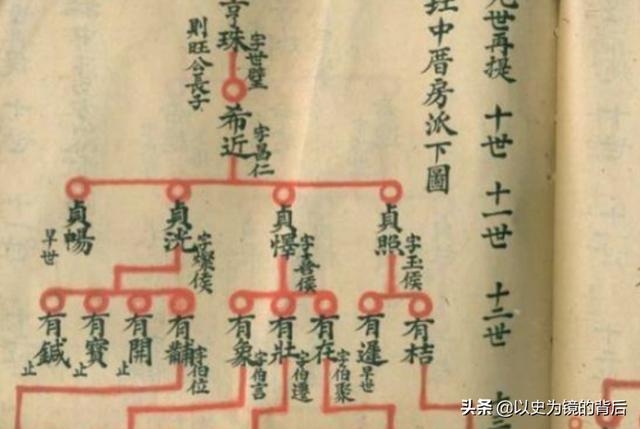 世再提 十世 十一世 十二世
中厝房派下圖
亨珠
字世璧
則旺公長子
希近
字昌仁
貞照
字玉侯
貞懌
字喜侯
貞洸
字燦侯
貞暢
早世
有桔
有暹
早世
有在
字伯聚
有壯
字伯邊
有象
字伯言
有黼
字伯位
有開
止
有寶
止
有鍼
止
头条 @以史为镜的背后